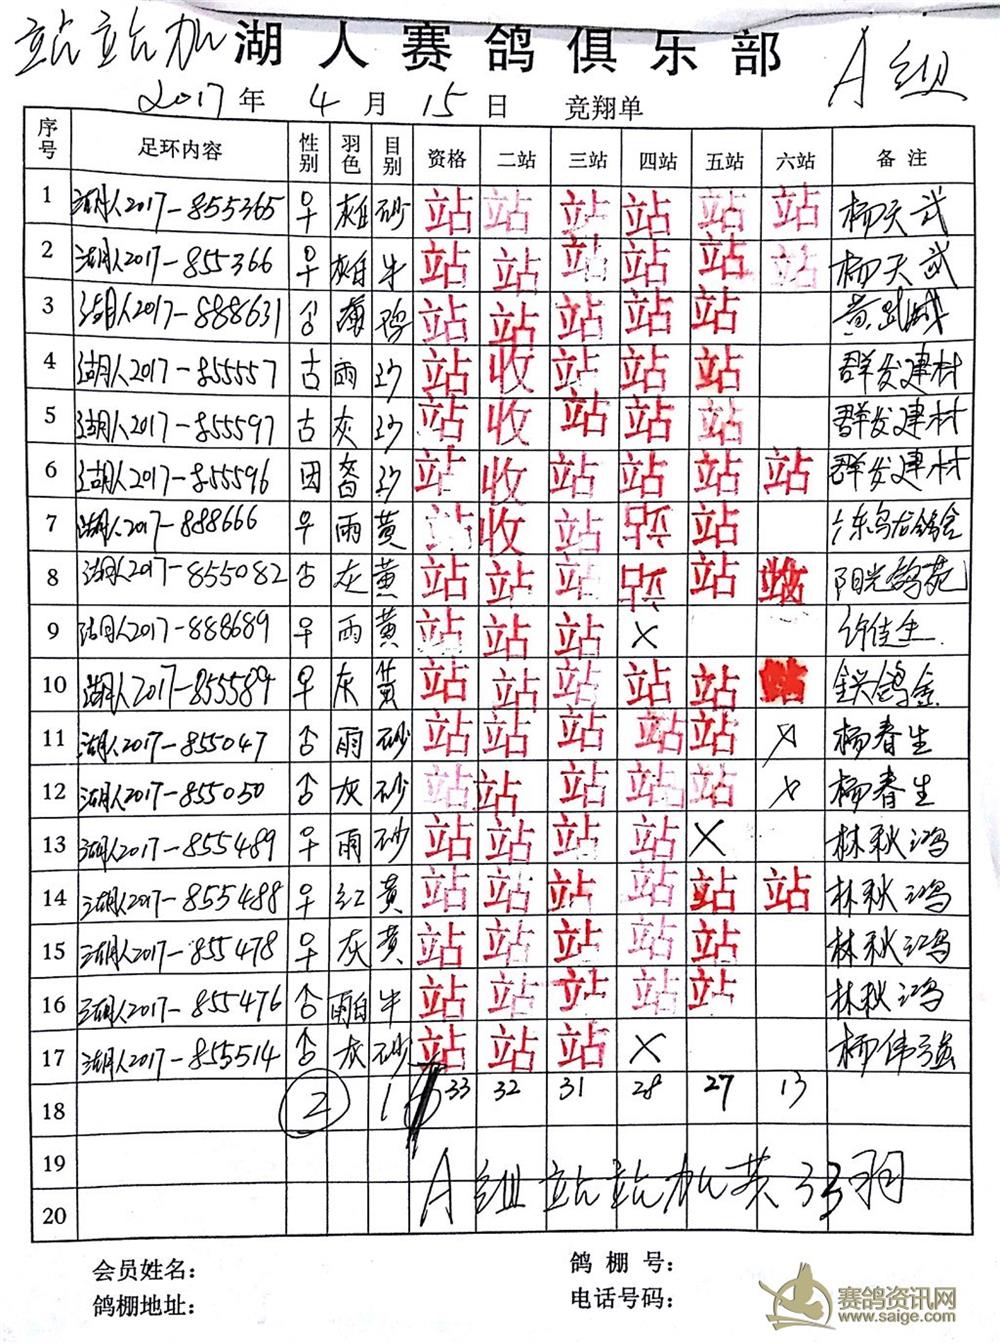 站站加 湖人赛鸽俱乐部 A组
2017年 4月 15日 竞翔单
序号 足环内容 性别 羽色 目别 资格 二站 三站 四站 五站 六站 备注
1 湖人2017-855365 ♀ 灰 砂 站 站 站 站 站 站 杨天武
2 湖人2017-855366 ♀ 牛 站 站 站 站 站 站 杨天武
3 湖人2017-888631 站 站 站 站 站
4 湖人2017-855557 雨 沙 站 收 站 站 站 群发建材
5 湖人2017-855597 灰 沙 站 收 站 站 站 群发建材
6 湖人2017-855596 沙 站 收 站 站 站 站 群发建材
7 湖人2017-888666 ♀ 雨 黄 站 收 站 站
8 湖人2017-855082 灰 黄 站 站 站 站 阳光鸽苑
9 湖人2017-888689 ♀ 雨 黄 站 站 站 × 许佳生
10 湖人2017-855589 ♀ 灰 黄 站 站 站 站 站 站
11 湖人2017-855047 ♂ 雨 砂 站 站 站 站 站 × 杨春生
12 湖人2017-855050 ♂ 灰 砂 站 站 站 站 站 × 杨春生
13 湖人2017-855489 ♀ 雨 砂 站 站 站 站 × 林秋鸿
14 湖人2017-855488 ♀ 红 黄 站 站 站 站 站 站 林秋鸿
15 湖人2017-855478 ♀ 灰 黄 站 站 站 站 站 林秋鸿
16 湖人2017-855476 ♂ 牛 站 站 站 站 站 林秋鸿
17 湖人2017-855514 ♂ 灰 砂 站 站 站 × 杨伟强
18 ② 33 32 31 28 27 13
19 A组站站加共33羽
20
会员姓名： 鸽棚号：
鸽棚地址： 电话号码：
赛鸽资讯网
www.saige.com